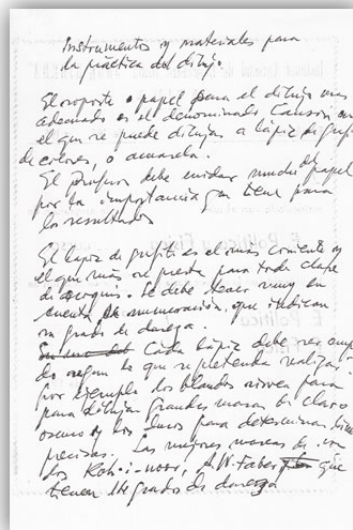 Instrumentos y materiales para
la práctica del dibujo.
El soporte o papel para el dibujo mas
adecuado es el denominado Canson en
el que se puede dibujar a lápiz de grafi
de colores, o acuarela.
El profesor debe cuidar mucho del papel
por la importancia que tiene para
los resultados
El lapiz de grafito es el mas corriente y
el que más se presta para toda clase
de croquis. Se debe tener muy en
cuenta la numeración, que indican
su grado de dureza.
Cada lápiz debe ser emplea
do segun lo que se pretenda realizar.
por ejemplo los blandos sirven para
para dibujar grandes masas de claro
oscuro y los duros para determinar
precisas. Las mejores marcas son
los Koh-i-noor, A.W. Faber que
tienen grados de dureza